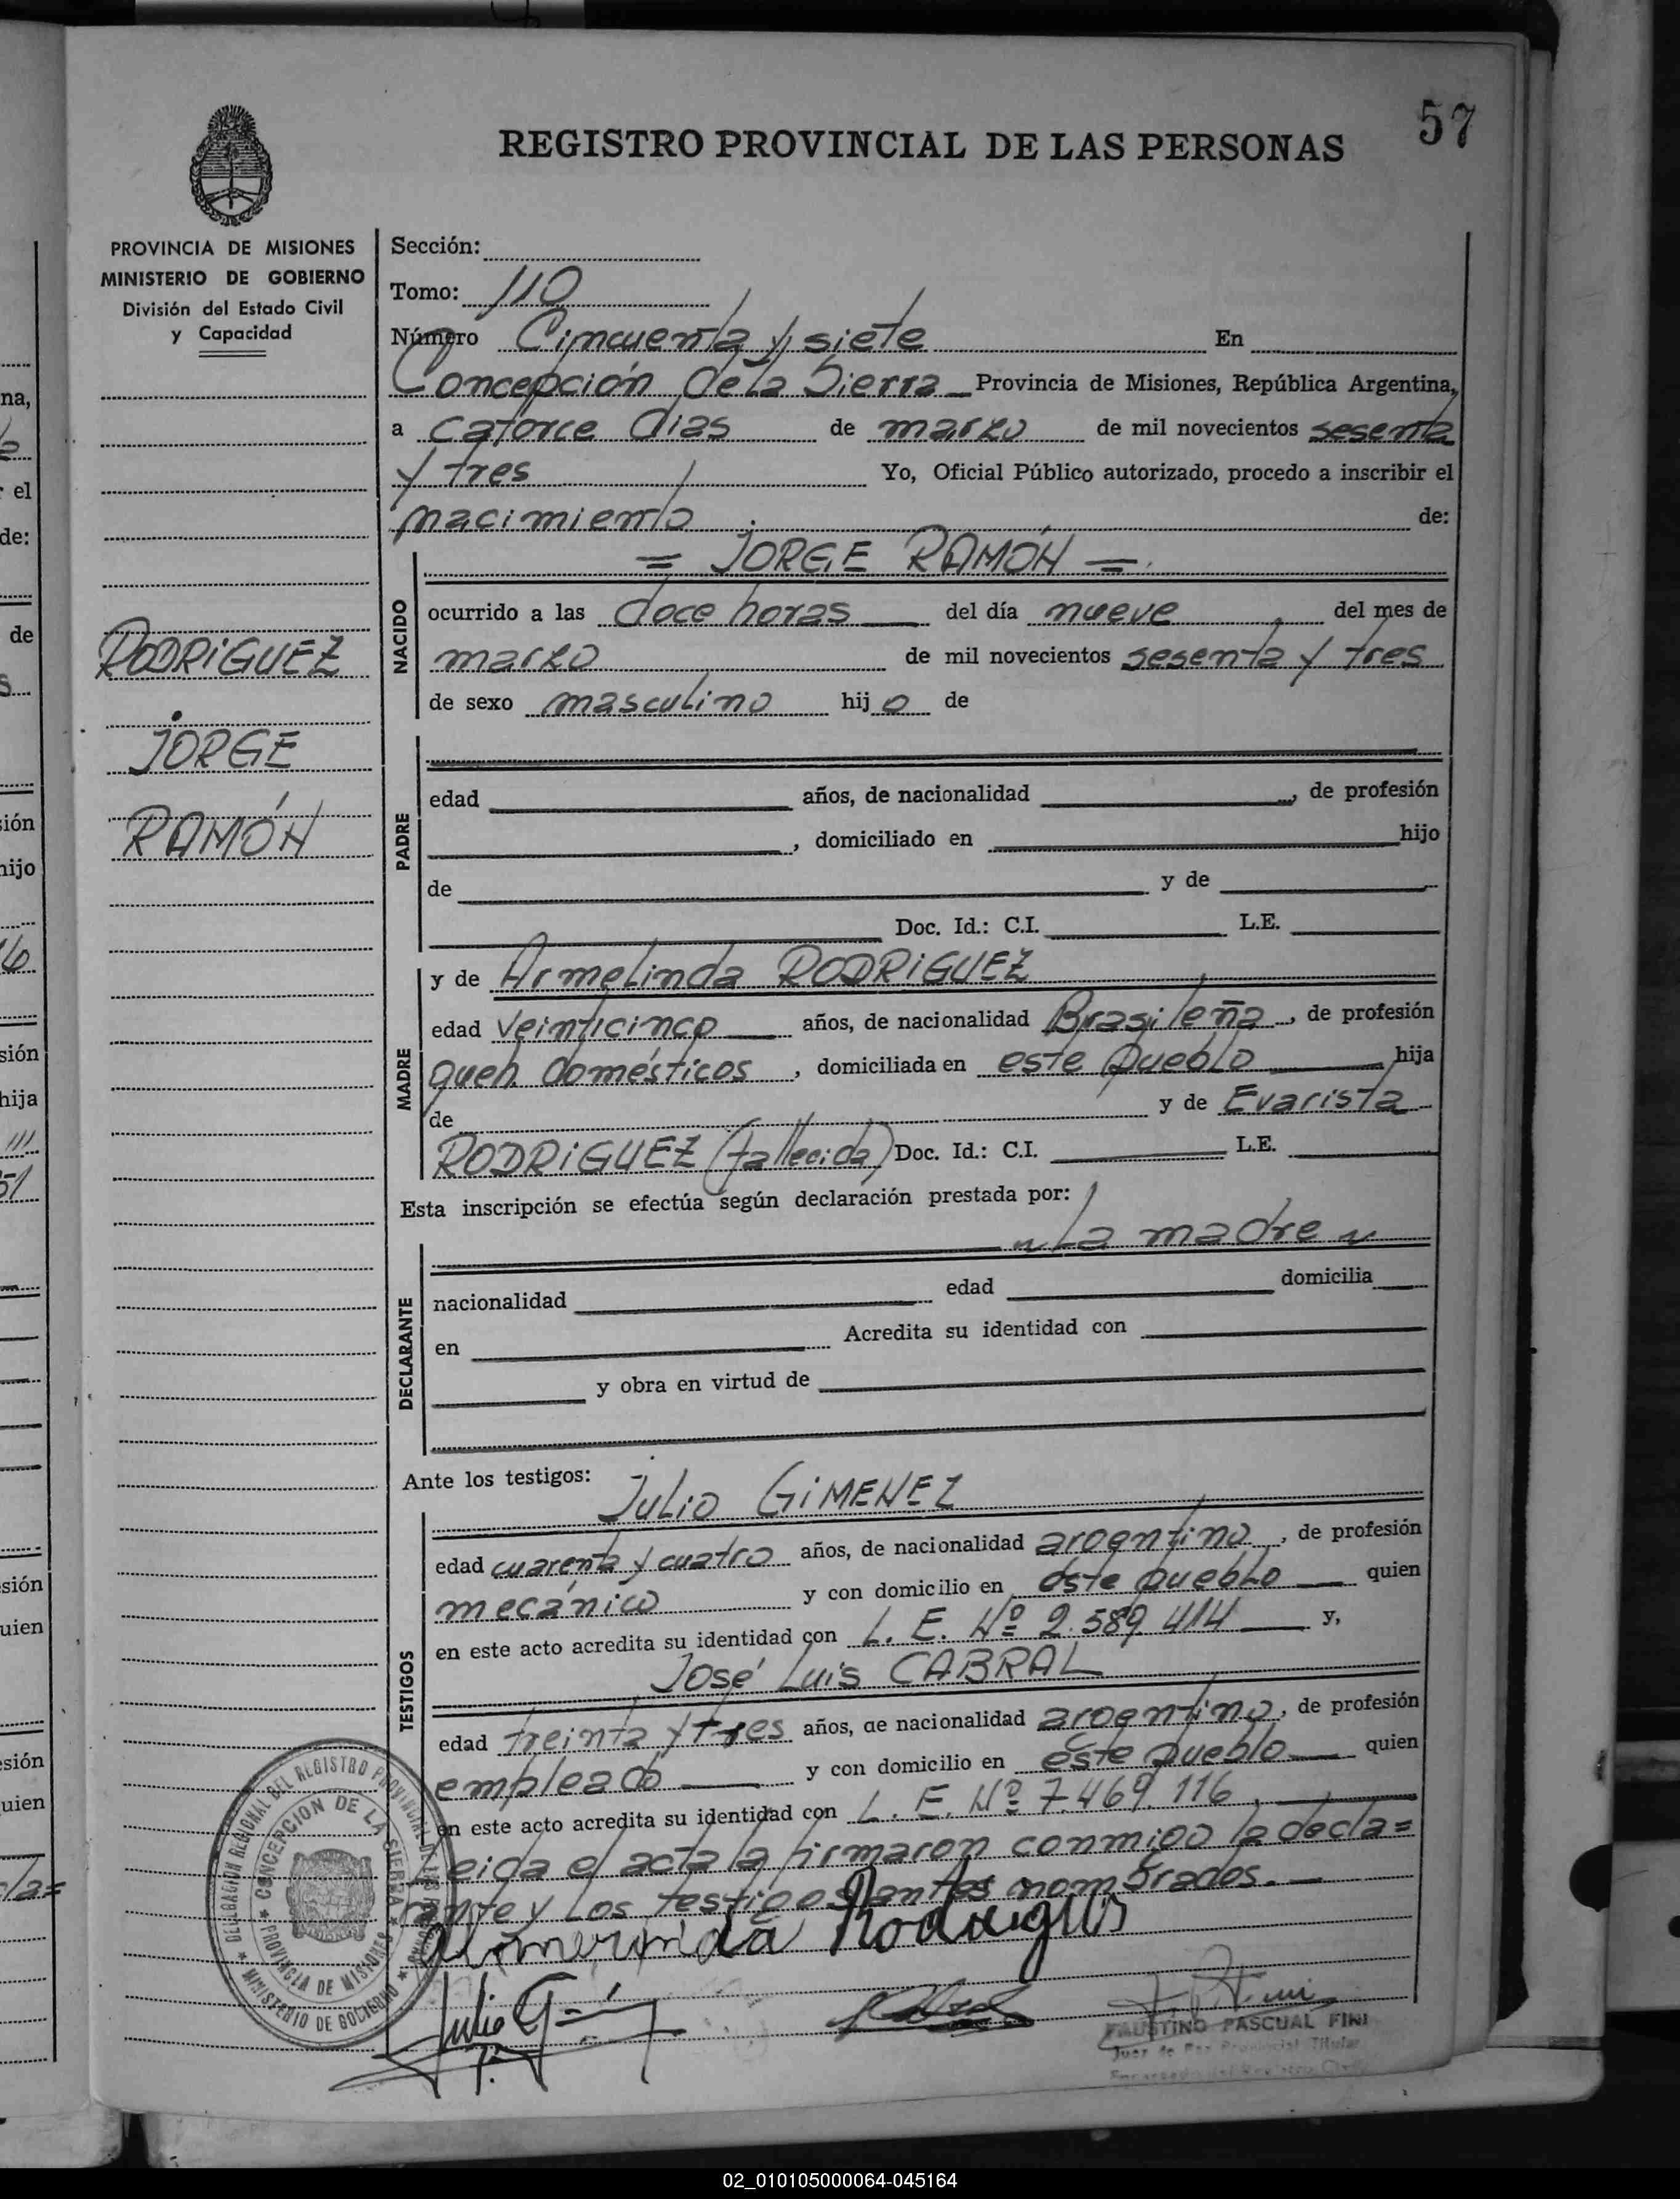 57
REGISTRO PROVINCIAL DE LAS PERSONAS
PROVINCIA DE MISIONES
MINISTERIO DE GOBIERNO
División del Estado Civil
y Capacidad
RODRiGUEZ
JORGE
RAMÓN
Sección:
Tomo: 110
Número Cincuenta y siete En
Concepción de La Sierra Provincia de Misiones, República Argentina,
a catorce dias de marzo de mil novecientos sesenta
y tres Yo, Oficial Público autorizado, procedo a inscribir el
nacimiento de:
= JORGE RAMÓN =
NACIDO
ocurrido a las doce horas del día nueve del mes de
marzo de mil novecientos sesenta y tres
de sexo masculino hijo de
PADRE
edad años, de nacionalidad , de profesión
, domiciliado en hijo
de y de
Doc. Id.: C.I. L.E.
MADRE
y de Armelinda RODRiGUEZ
edad veinticinco años, de nacionalidad Brasileña, de profesión
queh. domésticos, domiciliada en este pueblo hija
de y de Evarista
RODRiGUEZ (fallecida) Doc. Id.: C.I. L.E.
Esta inscripción se efectúa según declaración prestada por:
La madre
DECLARANTE
nacionalidad edad domicilia
en Acredita su identidad con
y obra en virtud de
Ante los testigos:
Julio GiMENEZ
TESTIGOS
edad cuarenta y cuatro años, de nacionalidad argentino, de profesión
mecánico y con domicilio en este pueblo quien
en este acto acredita su identidad con L. E. Nº 2.589.414 y,
José Luis CABRAL
edad treinta y tres años, de nacionalidad argentino, de profesión
empleado y con domicilio en este pueblo quien
en este acto acredita su identidad con L. E. Nº 7.469.116.
Leida el acta la firmaron conmigo la decla=
rante y los testigos antes nombrados.
Rodrigues
Julio
FAUSTINO PASCUAL FINI
Juez de Paz Provincial Titular
DELEGACION REGIONAL DEL REGISTRO PROVINCIAL DE LAS PERSONAS
MINISTERIO DE GOBIERNO
CONCEPCION DE LA SIERRA
PROVINCIA DE MISIONES
02_010105000064-045164